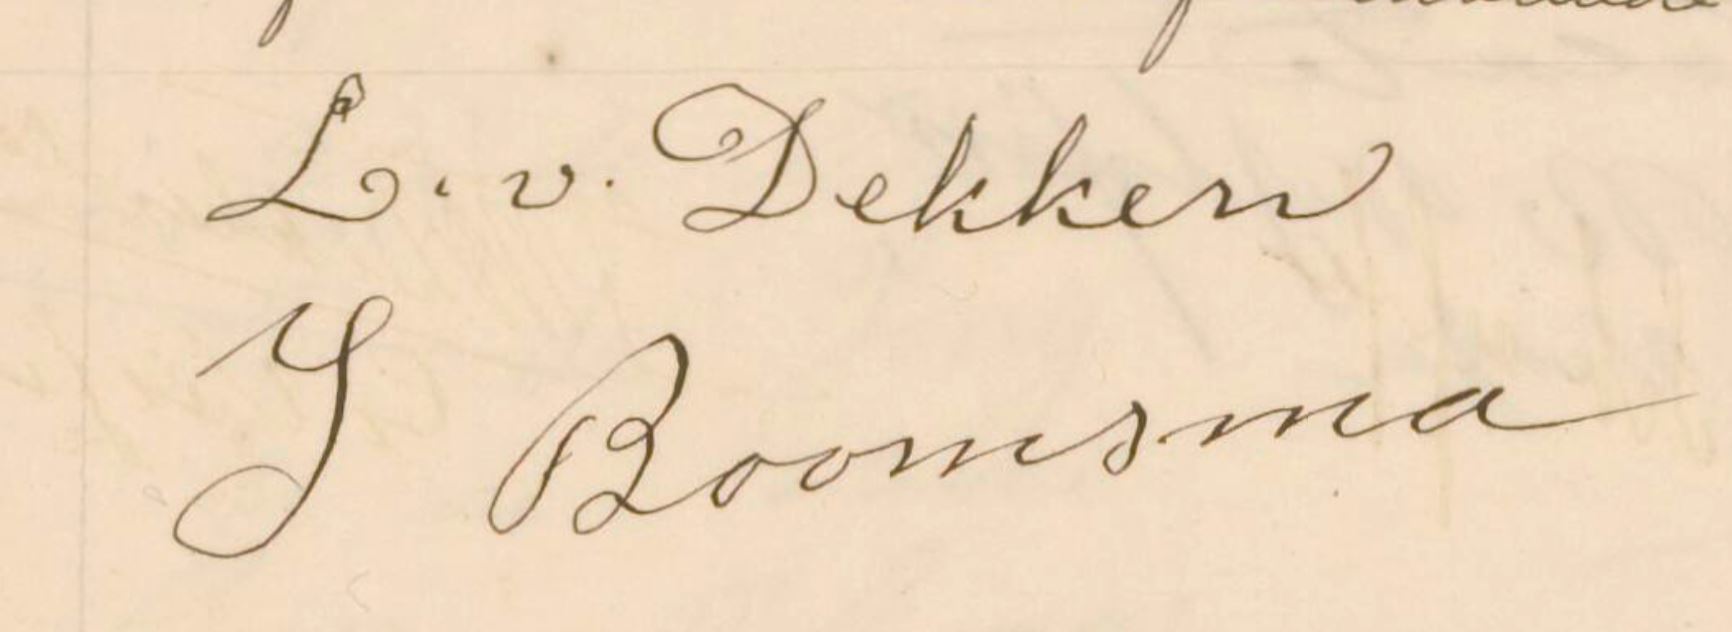 L. v. Dekken
Y Boomsma